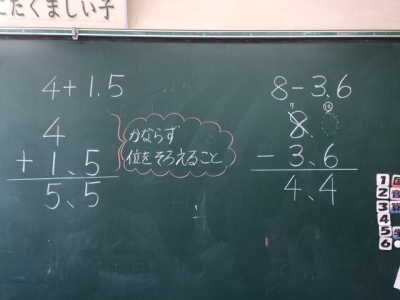 にたくましい子
4+1、5
4
+1、5
5、5
かならず
位をそろえること
8-3、6
7 10
8、
-3、6
4、4
1
2
3
4
5
6
音
算